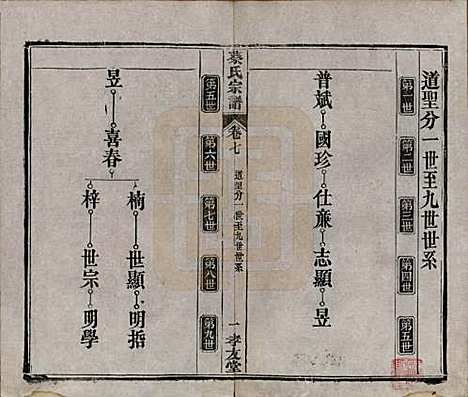 道聖分一世至九世世系
第一世 第二世 第三世 第四世 第五世
普斌 國珍 仕廉 志顯 昱
蔡氏宗譜 卷七 道聖分一世至九世世系 一 孝友堂
第五世 第六世 第七世 第八世 第九世
昱 喜春 楠 世顯 明指
梓 世宗 明學